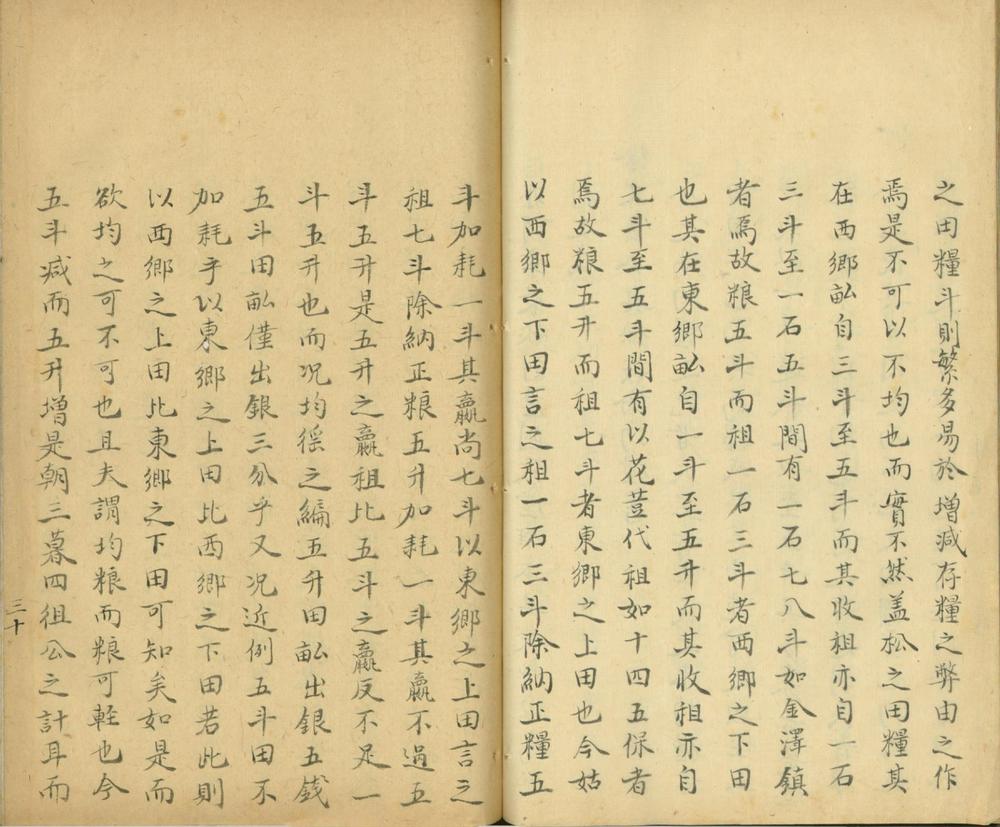 之田糧斗則繁多易於增減存糧之弊由之作
焉是不可以不均也而實不然盖松之田糧其
在西鄉畝自三斗至五斗而其收租亦自一石
三斗至一石五斗間有一石七八斗如金澤鎮
者焉故粮五斗而租一石三斗者西鄉之下田
也其在東鄉畝自一斗至五升而其收租亦自
七斗至五斗間有以花荳代租如十四五保者
焉故粮五升而租七斗者東鄉之上田也今姑
以西鄉之下田言之租一石三斗除納正糧五
斗加耗一斗其贏尚七斗以東鄉之上田言之
祖七斗除納正粮五升加耗一斗其贏不過五
斗五升是五升之贏租比五斗之贏反不足一
斗五升也而况均徭之編五升田畝出銀五錢
五斗田畝僅出銀三分乎又况近例五斗田不
加耗乎以東鄉之上田比西鄉之下田若此則
以西鄉之上田比東鄉之下田可知矣如是而
欲均之可不可也且夫謂均粮而粮可輊也今
五斗减而五升增是朝三暮四徂公之計耳而
三十